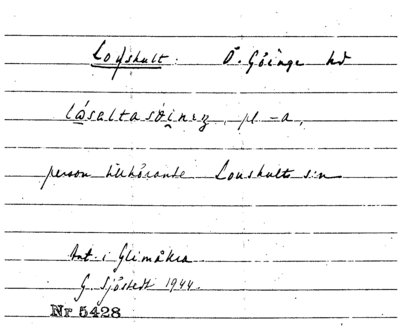 Loushult. Ö. Göinge hd
låsaltasöinız, pl -a,
person tillhörande Loushults sn
Ant. i Glimåkra
G. Sjöstedt 1944.
Nr 5428